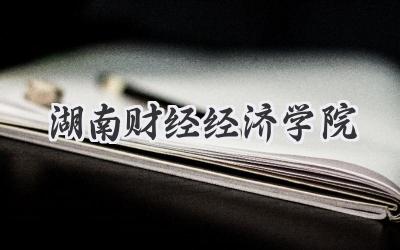 湖南财经经济学院